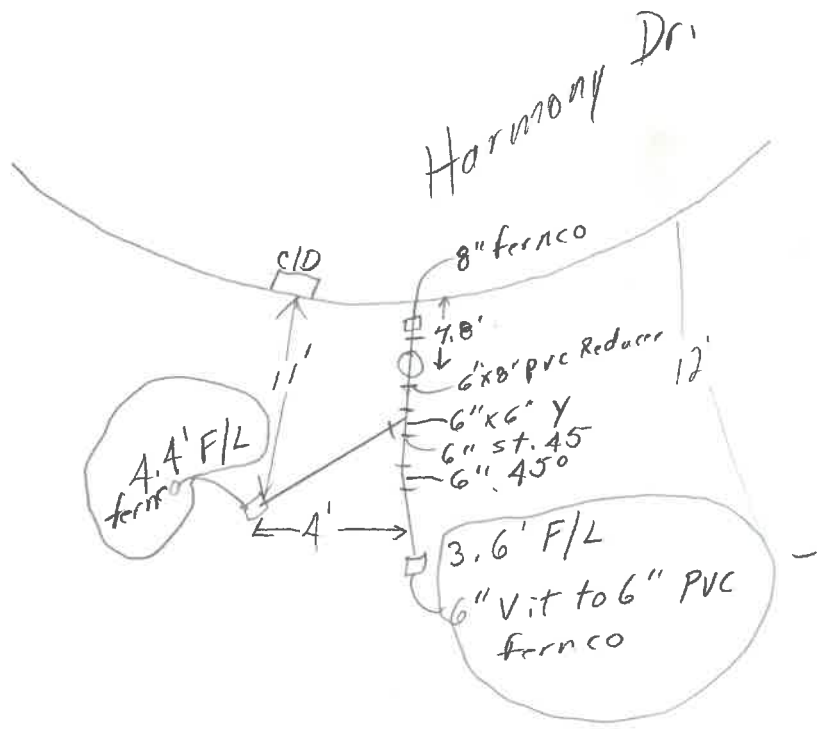 Harmony Dr.
8" fernco
C/D
7.8'
11'
6"x8" PVC Reducer
12'
6"x6" Y
6" st. 45
6" 45°
4.4' F/L
fernco
4'
3.6' F/L
6" Vit to 6" PVC
fernco